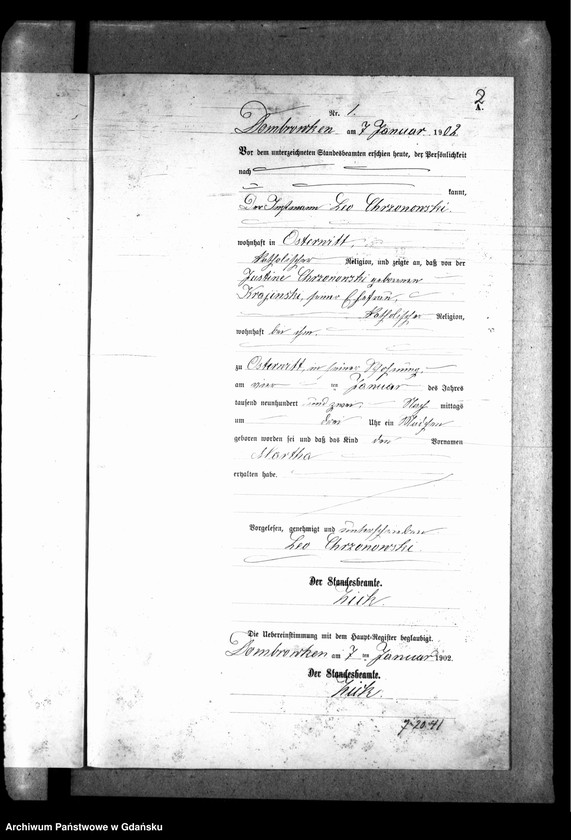 2
A.
Nr. 1.
Dombrowken am 7 Januar 1902
Vor dem unterzeichneten Standesbeamten erschien heute, der Persönlichkeit
nach
kannt,
Der Instmann Leo Chrzonowski
wohnhaft in Osterwitt,
katholischer Religion, und zeigte an, daß von der
Justine Chrzonowski geborenen
Krajenski, seine Ehefrau,
katholischer Religion,
wohnhaft bei ihm
zu Osterwitt, in seiner Wohnung,
am vier ten Januar des Jahres
tausend neunhundert und zwei, Nach mittags
um drei Uhr ein Mädchen
geboren worden sei und daß das Kind den Vornamen
Martha
erhalten habe.
Vorgelesen, genehmigt und unterschrieben
Leo Chrzonowski
Der Standesbeamte.
Die Uebereinstimmung mit dem Haupt-Register beglaubigt.
Dombrowken am 7 ten Januar 1902.
Der Standesbeamte.
7-20-41
Archiwum Państwowe w Gdańsku